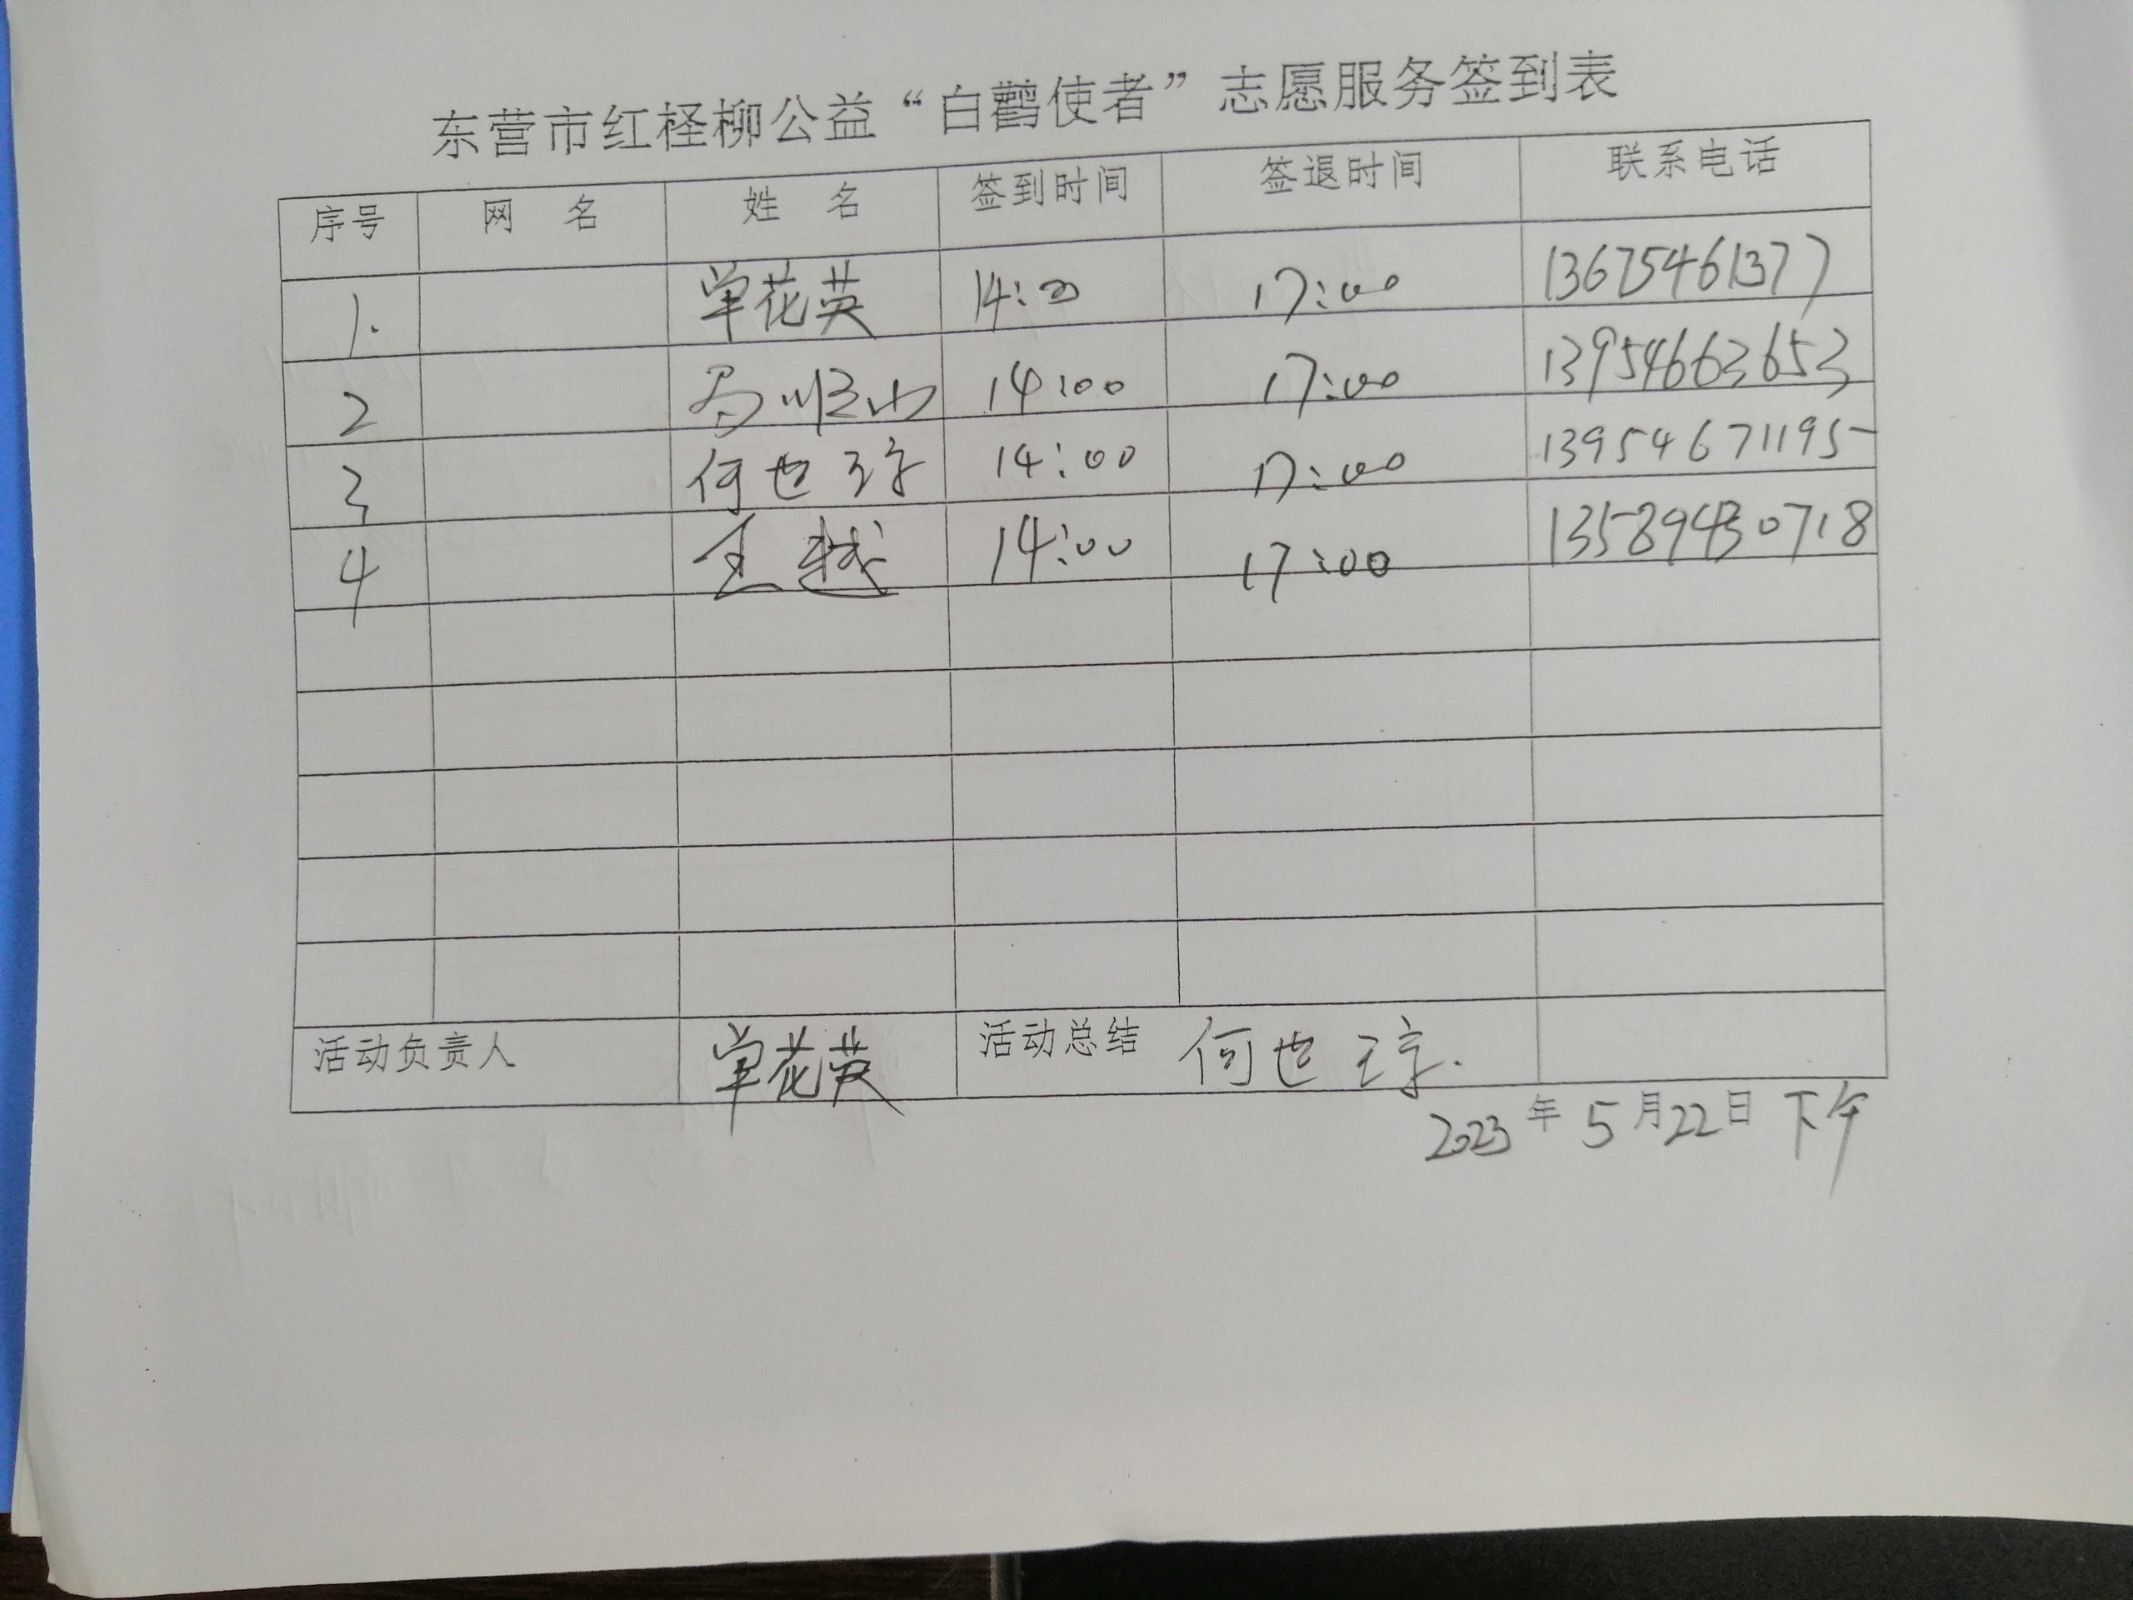 东营市红柽柳公益“白鹳使者”志愿服务签到表
序号 网 名 姓 名 签到时间 签退时间 联系电话
1. 单花英 14:00 17:00 13675461377
2 14:00 17:00 13954663653
3 何世 14:00 17:00 13954671195
4 王越 14:00 17:00 13589430718
活动负责人 单花英 活动总结 何世
2023年5月22日 下午